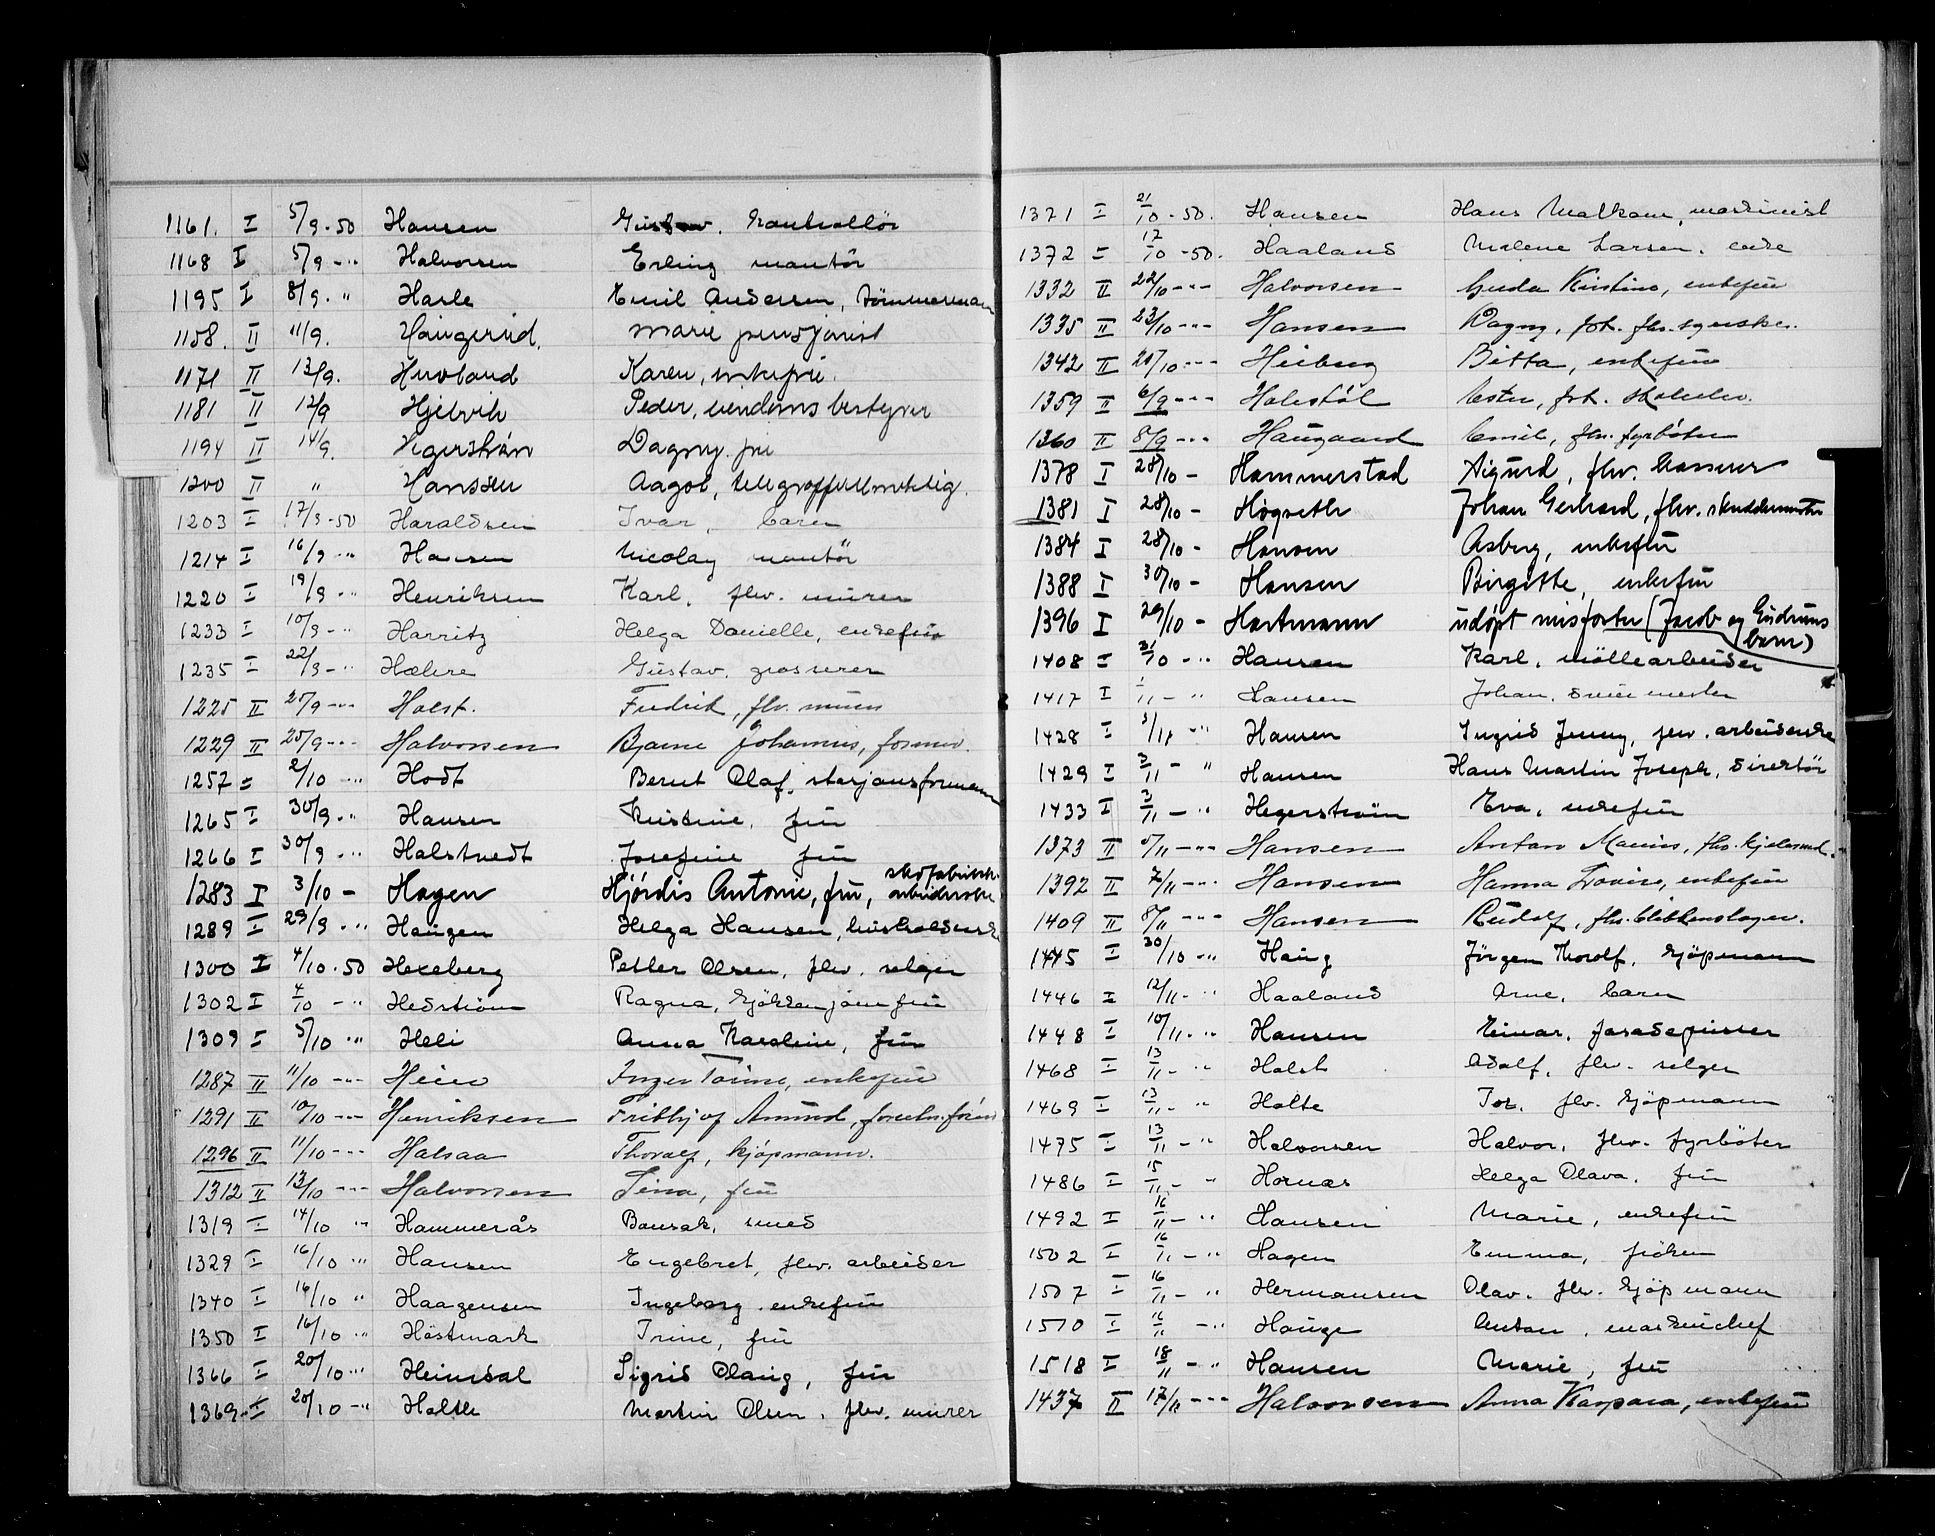 1161. I 5/9-50 Hansen Gustav, kontrollör
1168 I 5/9-" Halvorsen Erling montör
1195 I 8/9. " Harle Emil Andersen, tömmermann
1158. II 11/9. Haugerud. Marie pensjonist
1171 II 13/9. Huvland Karen, enkefru.
1181 II 12/9 Hjelvik Peder, eiendoms bestyrer
1194 II 14/9. Hegerström Dagny. fru
1200 II " Hanssen Aagot, telegraffullmektig.
1203 I 17/9-50 Haraldsen Ivar, baren
1214 I 16/9 -" Hansen Nicolay montör
1220 I 19/9 -" Henriksen Karl, fhv. murer
1233 I 10/9 -" Harritz Helga Danielle, enkefru
1235 I 22/9 -" Hæhre Gustav. grosserer
1225 II 25/9 -" Holst. Fredrik, fhv. murer
1229 II 25/9 -" Halvorsen Bjarne Johannes, former.
1257 = 2/10 -" Hodt Bernt Olaf, stasjonsformann
1265 I 30/9 -" Hansen Kristine, fru
1266 I 30/9 -" Halstvedt Josefine fru
1283 I 3/10 - Hagen Hjördis Antonie, fru, skofabrikk-arbeiderske
1289 I 29/9 -" Haugen Helga Hansen, husholderske
1300 I 4/10-50 Hexeberg Petter Olsen, fhv. selger
1302 I 4/10 -" Hedström Ragna, kjökkenjomfru
1309 I 5/10 -" Heli Anna Karoline, fru
1287 II 11/10 -" Heier Inger Torine, enkefru
1291 II 10/10 -" Henriksen Frithjof Amund,
1296 II 11/10 -" Halsaa Thoralf, kjøpmann.
1312 II 13/10 -" Halvorsen Lina, fru
1319 I 14/10 -" Hammerås Bonsak, smed
1329 I 16/10 -" Hansen Engebret, fhv. arbeider
1340 I 16/10 " Haagensen Ingeborg. enkefru
1350 I 16/10 -" Höstmark Irine, fru
1366 I 20/10 -" Heimdal Sigrid Olaug, fru
1369 I 20/10 -" Holth Martin Olsen, fhv. murer
1371 I 21/10 -50. Hansen Hans Malkom, maskinist
1372 = 17/10 -50. Haaland Malene Larsen. enke
1332 II 22/10 -" Halvorsen Guda Kirstine, enkefru
1335 II 23/10 -" Hansen Dagny, frk. fhv. syerske.
1342 II 20/10 -" Heiberg Betta, enkefru
1359 II 6/9 -" Holestöl Ester, frk. skoleelev.
1360 II 8/9 -" Haugaard Emil, fhv. fyrbøter
1378 I 28/10 - Hammerstad Sigurd, fhv. kasserer
1381 I 28/10 - Høgseth Johan Gerhard, fhv.
1384 I 28/10 - Hansen Asberg, enkefru
1388 I 30/10 - Hansen Birgitte, enkefru
1396 I 29/10 - Hartmann udøpt misfoster (Jacob og Gudruns barn)
1408 = 31/10 -" Hansen Karl, möllearbeider
1417 I 1/11 - " Hansen Johan.
1428 I 3/11 -" Hansen Ingrid Jenny, fhv. arbeiderske
1429 I 3/11 - " Hansen Hans Martin Joseph, direktör
1433 I 3/11 - " Hegerström Eva, enkefru
1373 II 5/11 -" Hansen Anton Marius, fhv. kjelesmed.
1392 II 7/11 -" Hansen Hanna Lovise, enkefru
1409 II 8/11 -" Hansen Rudolf, fhv. blikkenslager.
1445 I 30/10 -" Haug Jörgen Thorolf, kjöpmann
1446 I 12/11 -" Haaland Arne, baren
1448 I 10/11 -" Hansen Einar, fasadepusser
1468 I 13/11 -" Holst Adolf, fhv. selger
1469 I 13/11 -" Holte Tor, fhv. kjöpmann
1475 I 13/11 -" Halvorsen Halvor, fhv. fyrböter
1486 I 15/11 - " Hornæs Helga Olava, fru
1492 I 16/11 -" Hansen Marie, enkefru
1502 I 16/11 -" Hagen Emma, fröken
1507 I 16/11 -" Hermansen Olav. fhv. kjöpmann
1510 I 16/11 -" Hauge Anton, maskinchef
1518 I 18/11 -" Hansen Marie, fru
1437 II 17/11 -" Halvorsen Anna Kaspara, enkefru